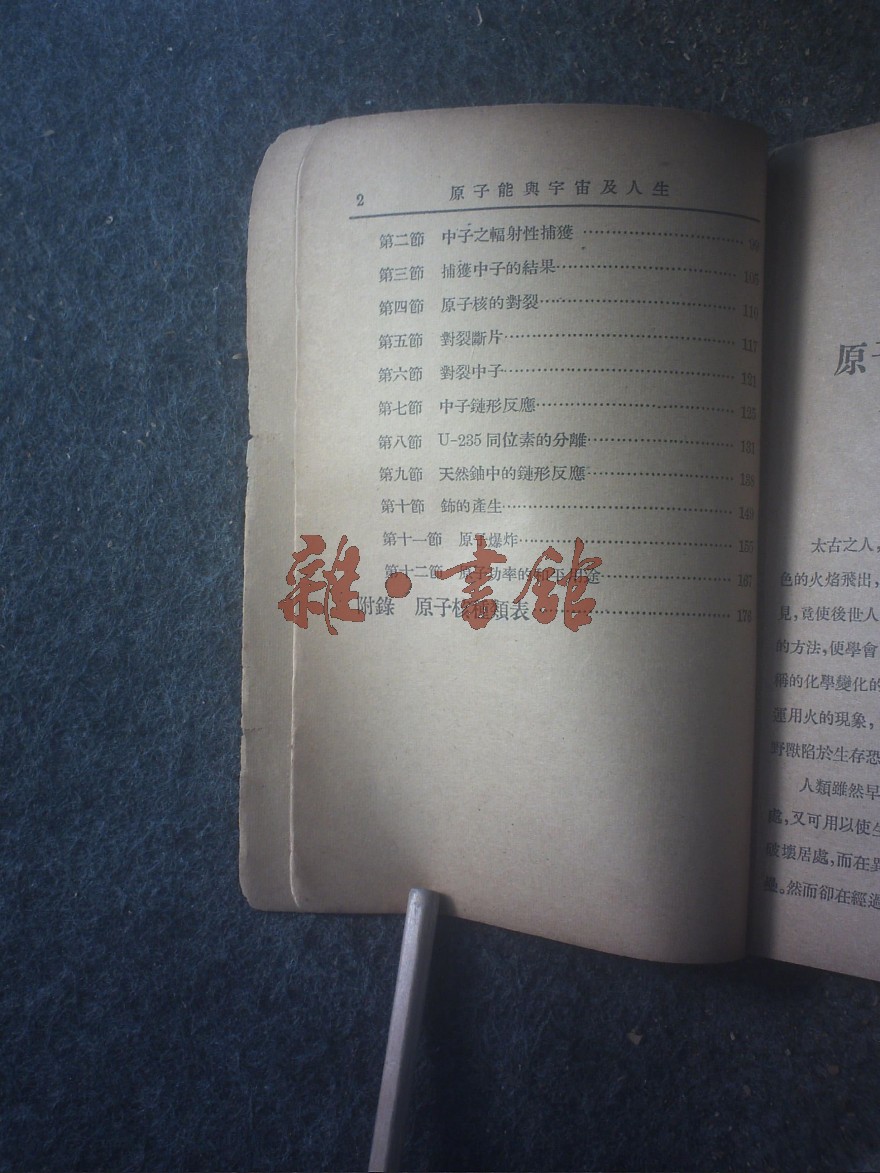 2 原子能與宇宙及人生
第二節 中子之輻射性捕獲
第三節 捕獲中子的結果 105
第四節 原子核的對裂 110
第五節 對裂斷片 117
第六節 對裂中子 121
第七節 中子鏈形反應 125
第八節 U-235同位素的分離 131
第九節 天然鈾中的鏈形反應 138
第十節 鈽的產生 149
第十一節 原子爆炸 155
第十二節 原子功率的和平用途 167
附錄 原子核種類表 176
雜·書館
原子
太古之人,
色的火焰飛出,
見,竟使後世人
的方法,便學會
稱的化學變化的
運用火的現象,
野獸陷於生存恐
人類雖然早
處,又可用以使生
破壞居處,而在異
。然而卻在經過